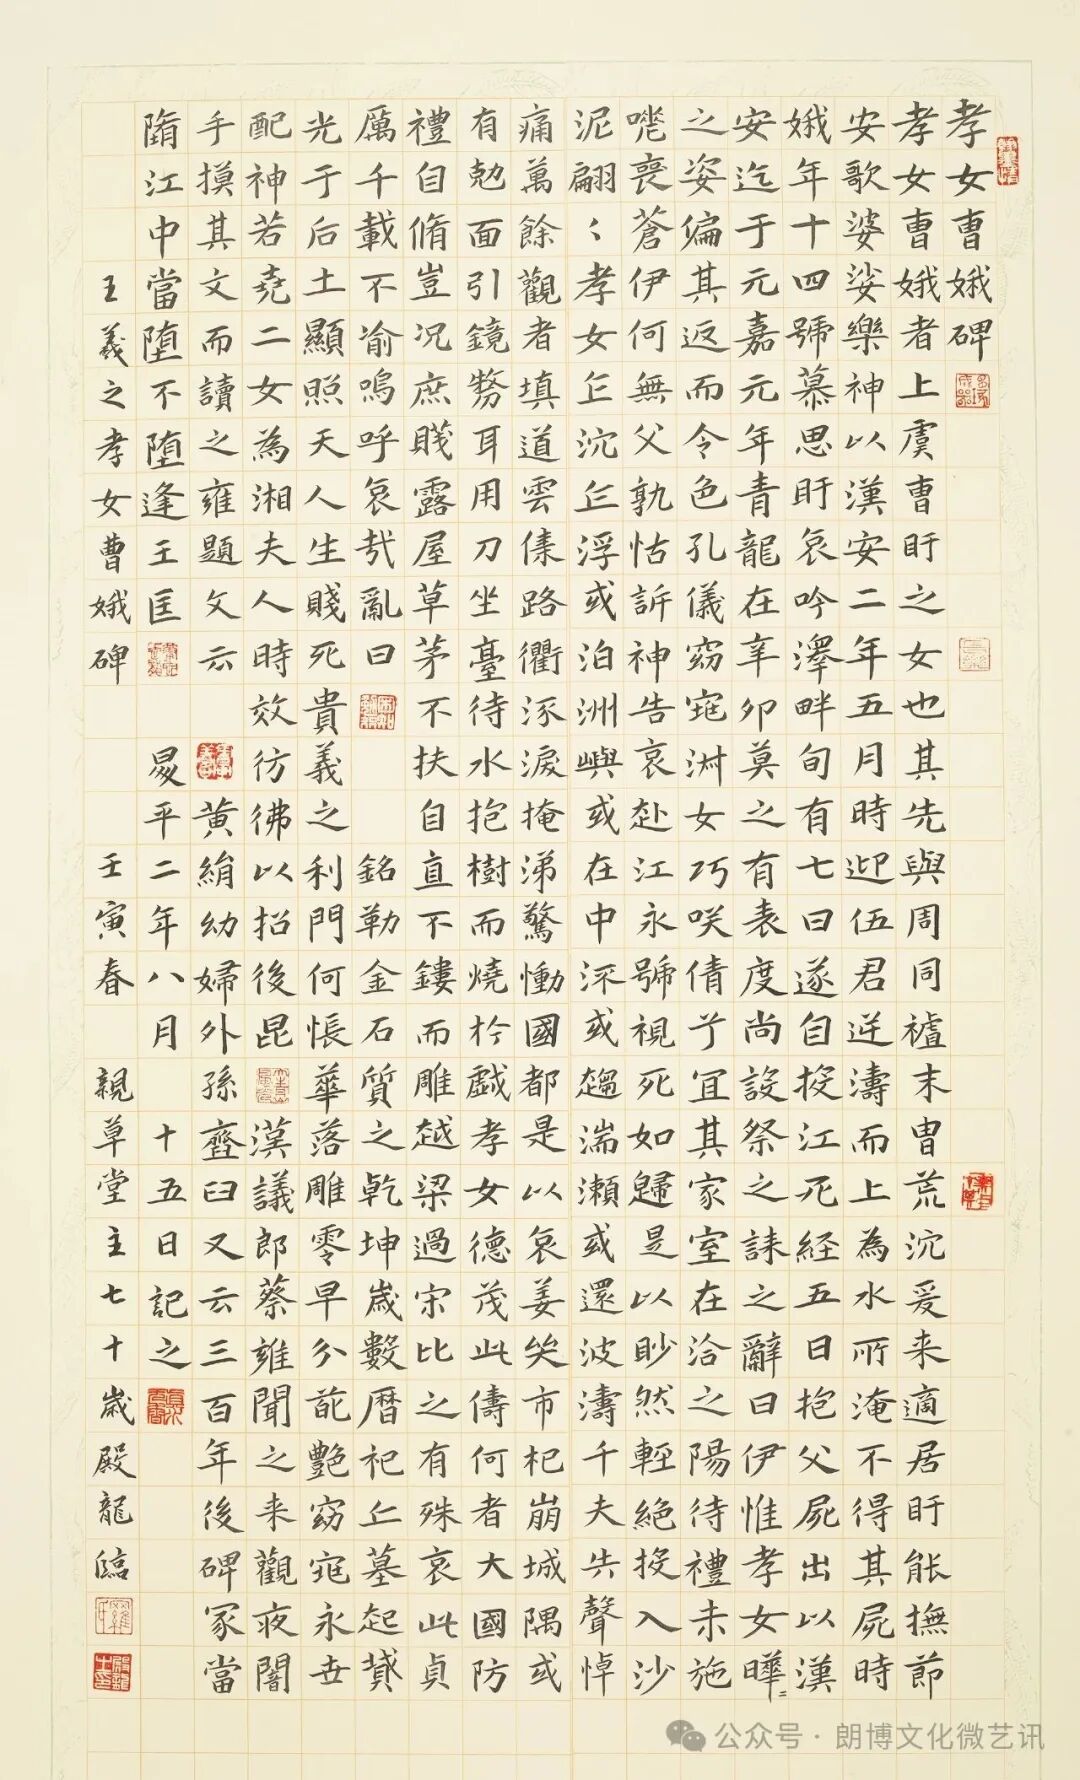 孝女曹娥碑
孝女曹娥者上虞曹盱之女也其先與周同祖末冑荒沉爰来適居盱能撫節
安歌婆娑樂神以漢安二年五月時迎伍君逆濤而上為水所淹不得其屍時
娥年十四號慕思盱哀吟澤畔旬有七日遂自投江死経五日抱父屍出以漢
安迄于元嘉元年青龍在辛卯莫之有表度尚設祭之誄之辭曰伊惟孝女曄〻
之姿偏其返而令色孔儀窈窕淑女巧咲倩兮宜其家室在洽之陽待禮未施
嗟喪蒼伊何無父孰怙訴神告哀赴江永號視死如歸是以眇然輕絕投入沙
泥翩〻孝女乍沉乍浮或泊洲嶼或在中流或趨湍瀨或還波濤千夫失聲悼
痛萬餘觀者填道雲集路衢泳淚掩涕驚慟國都是以哀姜哭市杞崩城隅或
有尅面引鏡剺耳用刀坐臺待水抱樹而燒於戯孝女德茂此儔何者大國防
禮自脩豈况庶賤露屋草茅不扶自直不鏤而雕越梁過宋比之有殊哀此貞
厲千載不渝嗚呼哀哉亂曰 銘勒金石質之乾坤歳數曆祀丘墓起墳
光于后土顯照天人生賤死貴義之利門何悵華落雕零早分葩艷窈窕永世
配神若堯二女為湘夫人時效彷彿以招後昆 漢議郎蔡雍聞之来觀夜闇
手摸其文而讀之雍題文云 黄絹幼婦外孫齏臼又云三百年後碑冢當
隋江中當堕不堕逢王匡 昇平二年八月 十五日記之
王羲之孝女曹娥碑 壬寅春 親草堂主七十歲殿龍臨
公众号·朗博文化微艺讯